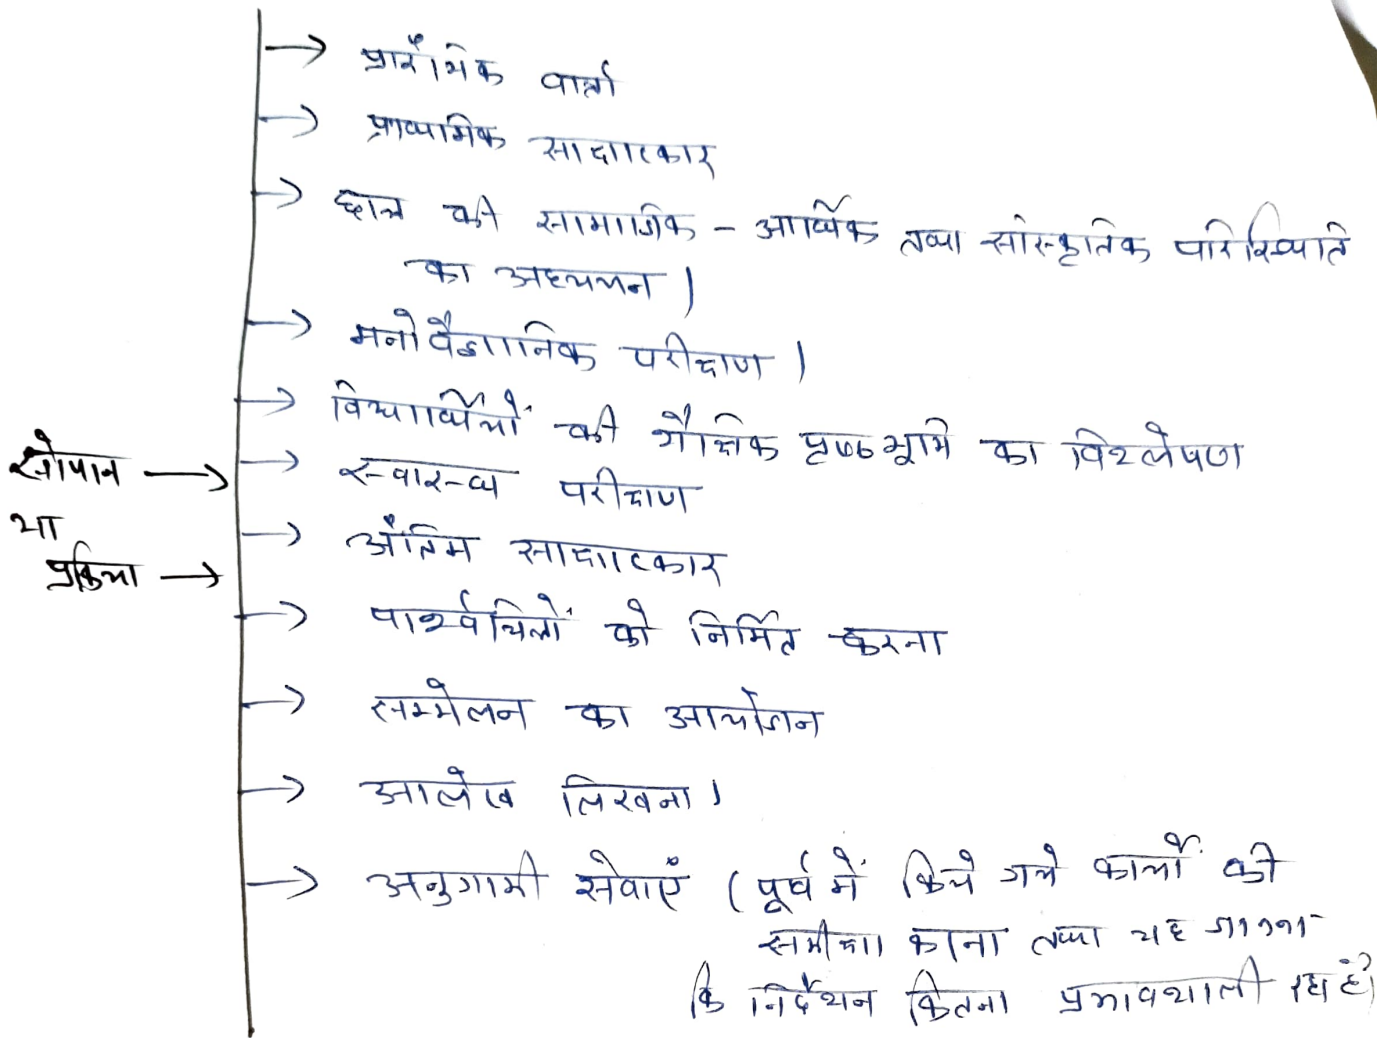 प्रारंभिक वार्ता
प्राथमिक साक्षात्कार
छात्र की सामाजिक - आर्थिक तथा सांस्कृतिक परिस्थिति
का अध्ययन ।
मनोवैज्ञानिक परीक्षण ।
विद्यार्थियों की शैक्षिक पृष्ठभूमि का विश्लेषण
सोपान
स्वास्थ्य परीक्षण
या
अंतिम साक्षात्कार
प्रक्रिया
पार्श्वचित्रों को निर्मित करना
सम्मेलन का आयोजन
आलेख लिखना ।
अनुगामी सेवाएँ ( पूर्व में किये गये कार्यों की
समीक्षा करना तथा यह जानना
कि निर्देशन कितना प्रभावशाली रहा है)